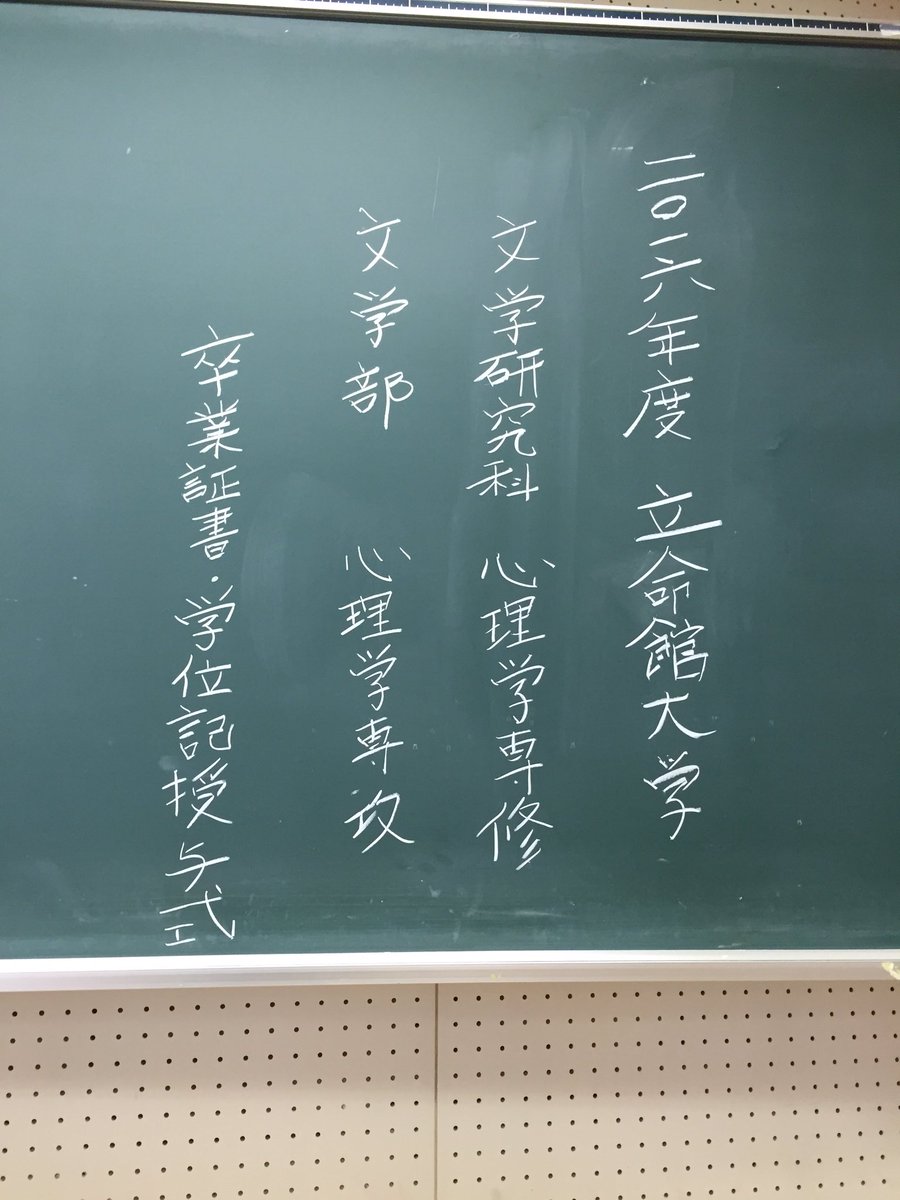 二〇一六年度 立命館大学
文学研究科 心理学専修
文学部 心理学専攻
卒業証書・学位記授与式